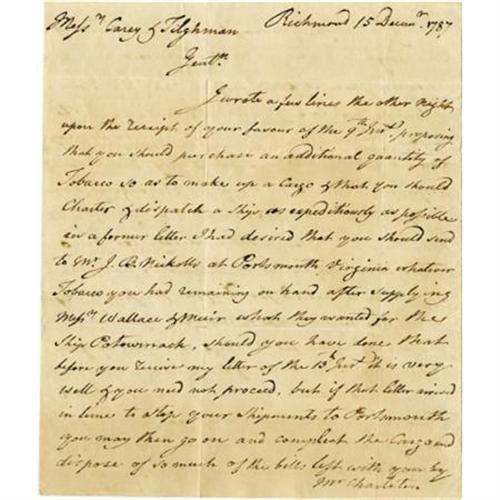 Richmond 15 Decemr. 1787
Messrs. Carey & Tilghman
Gentn.
I wrote a few lines the other night
upon the receipt of your favour of the 9th Inst. proposing
that you should purchase an additional quantity of
Tobacco so as to make up a Cargo & that you should
Charter & dispatch a Ship as expeditiously as possible
in a former letter I had desired that you should send
to Mr. J. B. Nickolls at Portsmouth Virginia whatever
Tobacco you had remaining on hand after supplying
Messrs. Wallace & Muir what they wanted for the
Ship Potowmack, should you have done that
before you receive my letter of the 13th Inst. it is very
well & you need not proceed, but if that letter arrived
in time to stop your Shipments to Portsmouth
you may then go on and compleat the Cargo and
dispose of so much of the bills left with you by
Mr. Charleton